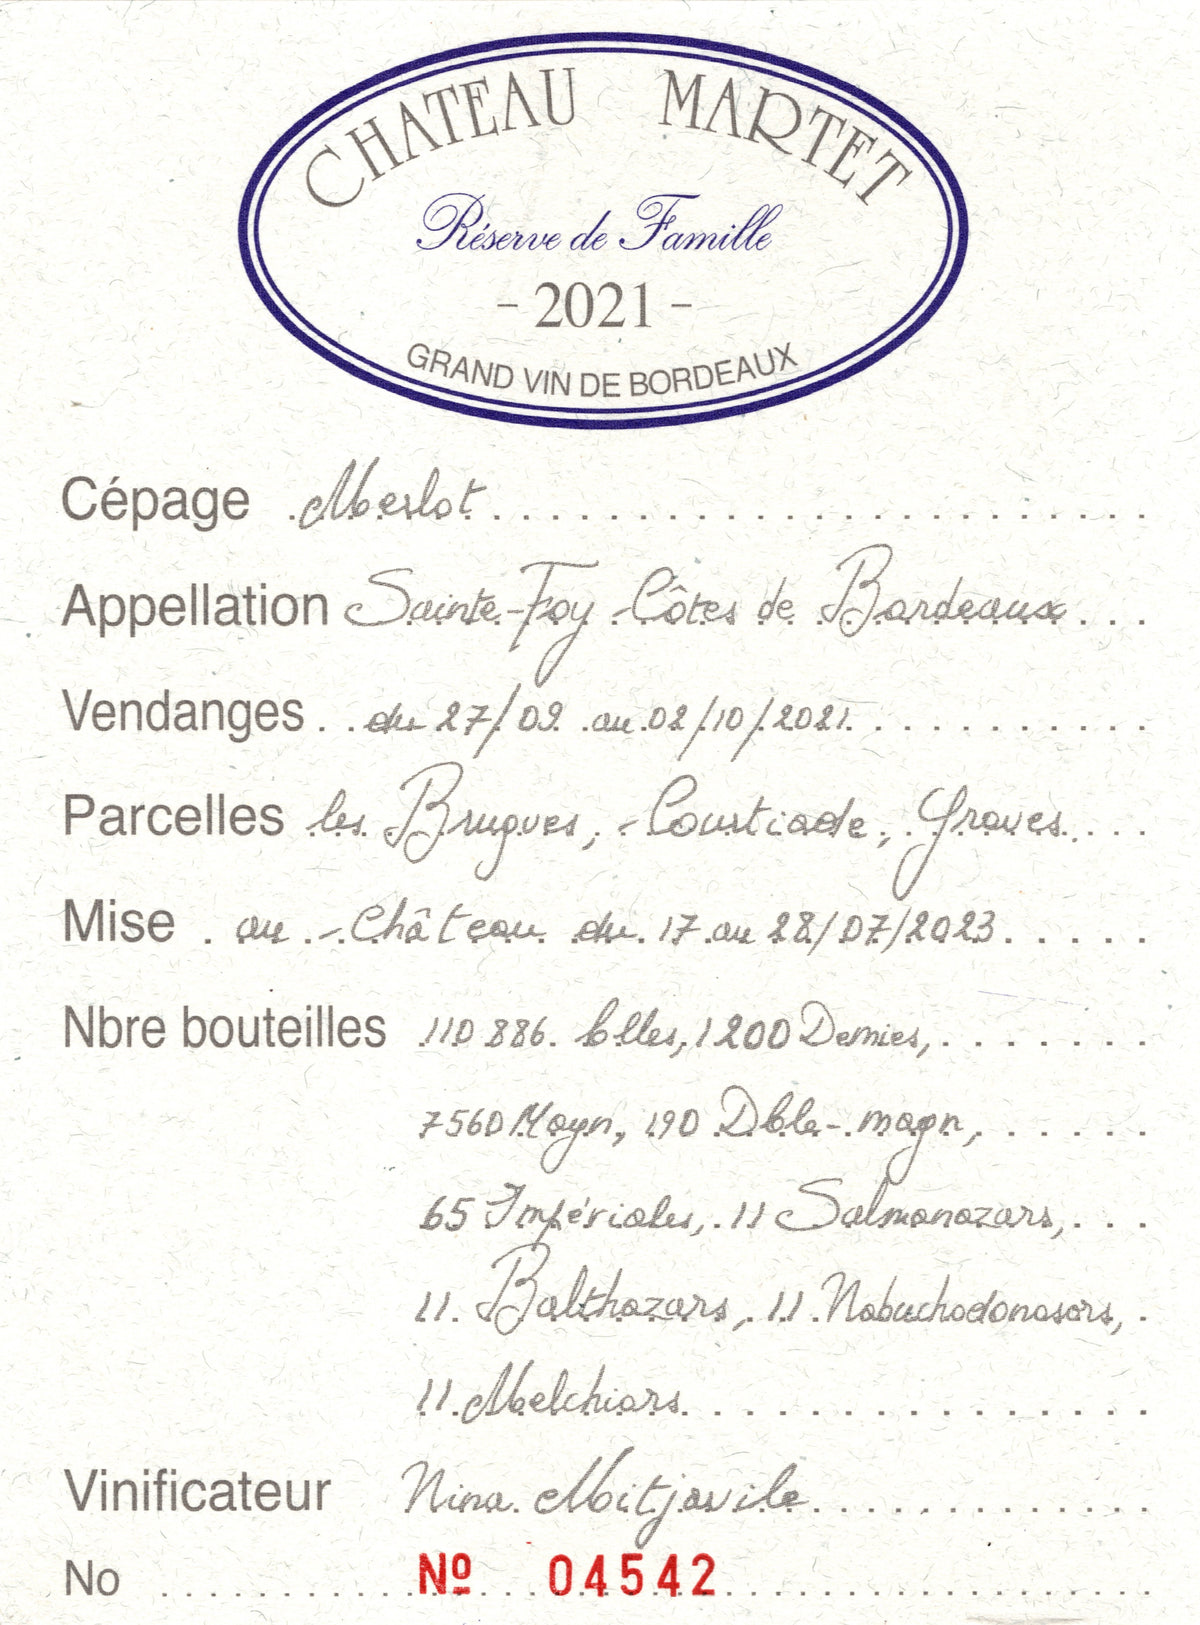 CHATEAU MARTET
Réserve de Famille
- 2021 -
GRAND VIN DE BORDEAUX
Cépage Merlot
Appellation Sainte-Foy Côtes de Bordeaux
Vendanges du 27/09 au 02/10/2021
Parcelles les Brugues, Courtiade, Graves
Mise au Château du 17 au 28/07/2023
Nbre bouteilles 110 886 blles, 1200 Demies,
7560 Magn, 190 Dble-magn,
65 Impériales, 11 Salmanazars,
11 Balthazars, 11 Nabuchodonosors,
11 Melchiors
Vinificateur Nina Mitjavile
No Nº 04542